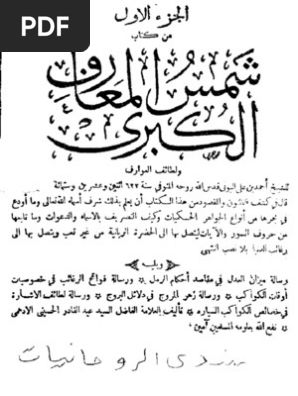 PDF
الجزء الاول
من كتاب
شمس المعارف
الكبرى
ولطائف العوارف
للشيخ أحمد بن على البونى قدس الله روحه المتوفى سنة ٦٢٢ اثنين وعشرين وستمائة
قال فى كشف الظنون والمقصود من هذا الكتاب أن يعلم بذلك شرف أسماء الله تعالى وما أودع
فى بحرها من أنواع الجواهر الحكميات وكيف التصريف بالأسماء والدعوات وما تابعها
من حروف السور والآيات ليتصل بها الى الحضرة الربانية من غير تعب ويتصل بها الى
رغائب الدنيا بلا نصب انتهى
ويليه
رسالة ميزان العدل فى مقاصد أحكام الرمل ورسالة فواتح الرغائب فى خصوصيات
أوقات الكواكب ورسالة زهر المروج فى دلائل البروج ورسالة لطائف الاشارة
فى خصائص الكواكب السيارة تأليف العلامة الفاضل السيد عبد القادر الحسينى الادهمى
نفع الله بعلومه المسلمين آمين
منتدى الروحانيات